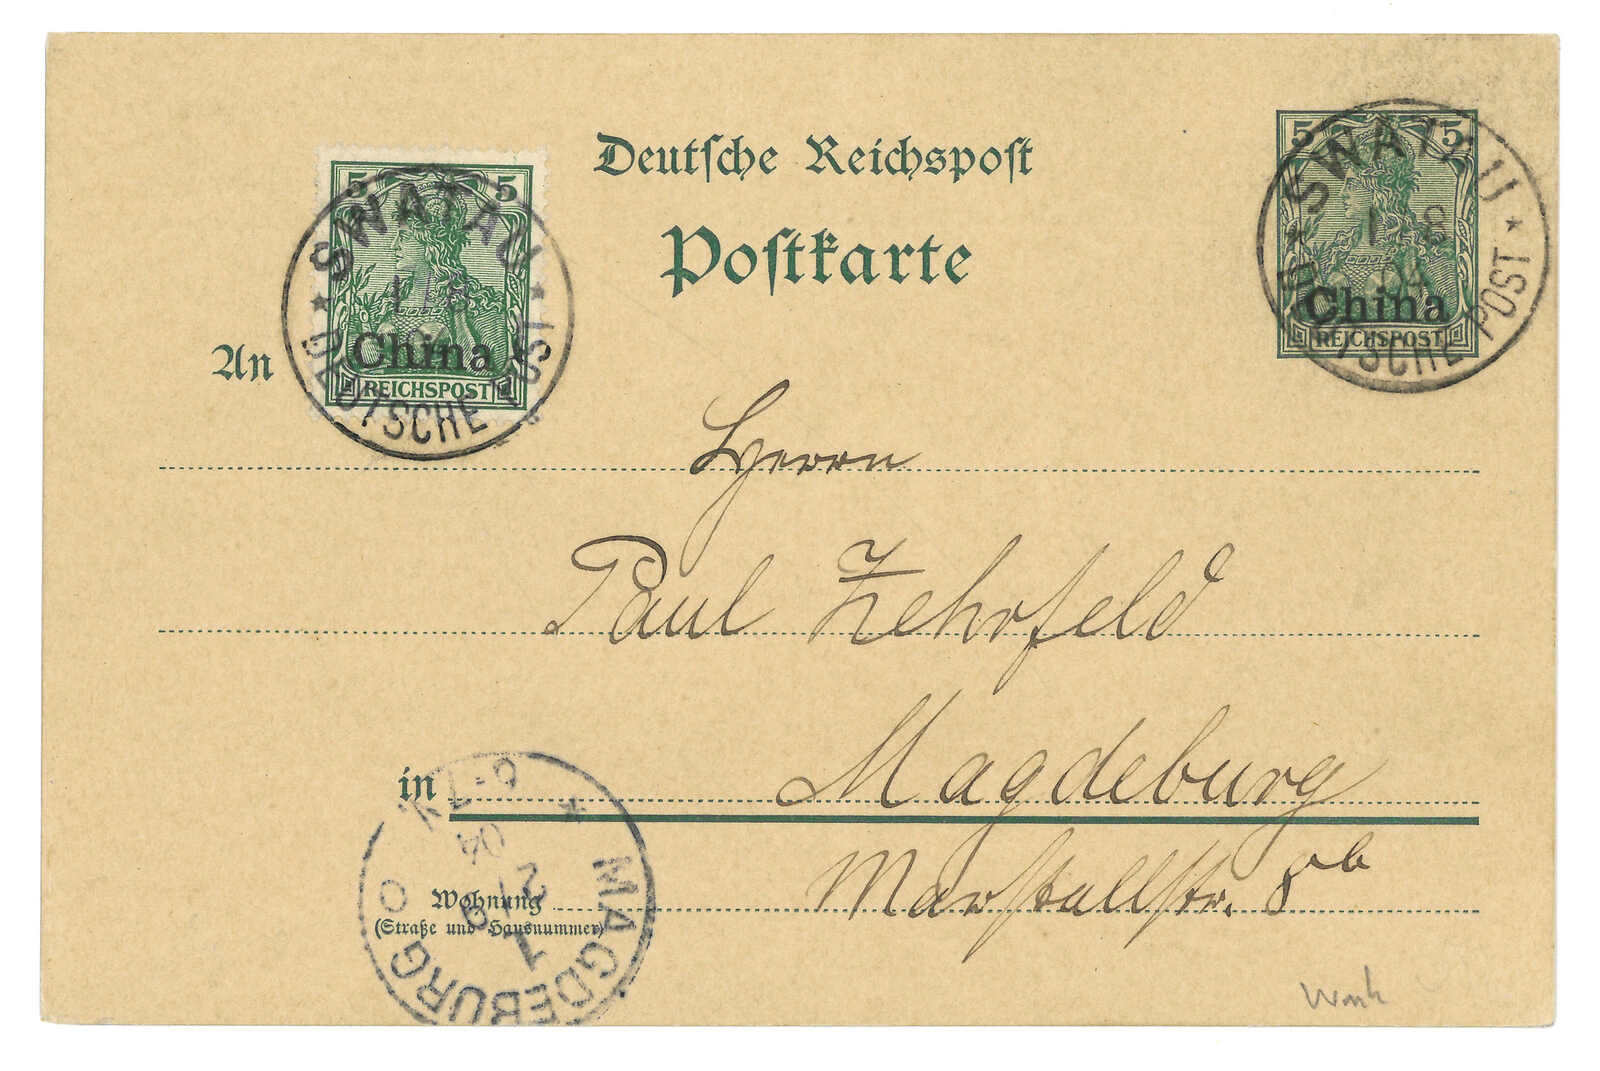 Deutsche Reichspost
Postkarte
5 5
China
REICHSPOST
SWATAU
1 8
DEUTSCHE POST
5 5
China
REICHSPOST
SWATAU
1 8
04
DEUTSCHE POST
An
Herrn
Paul Zehrfeld
in Magdeburg
Marstallstr. 8b
Wohnung
(Straße und Hausnummer)
MAGDEBURG
2/9
04
6-7N.
1